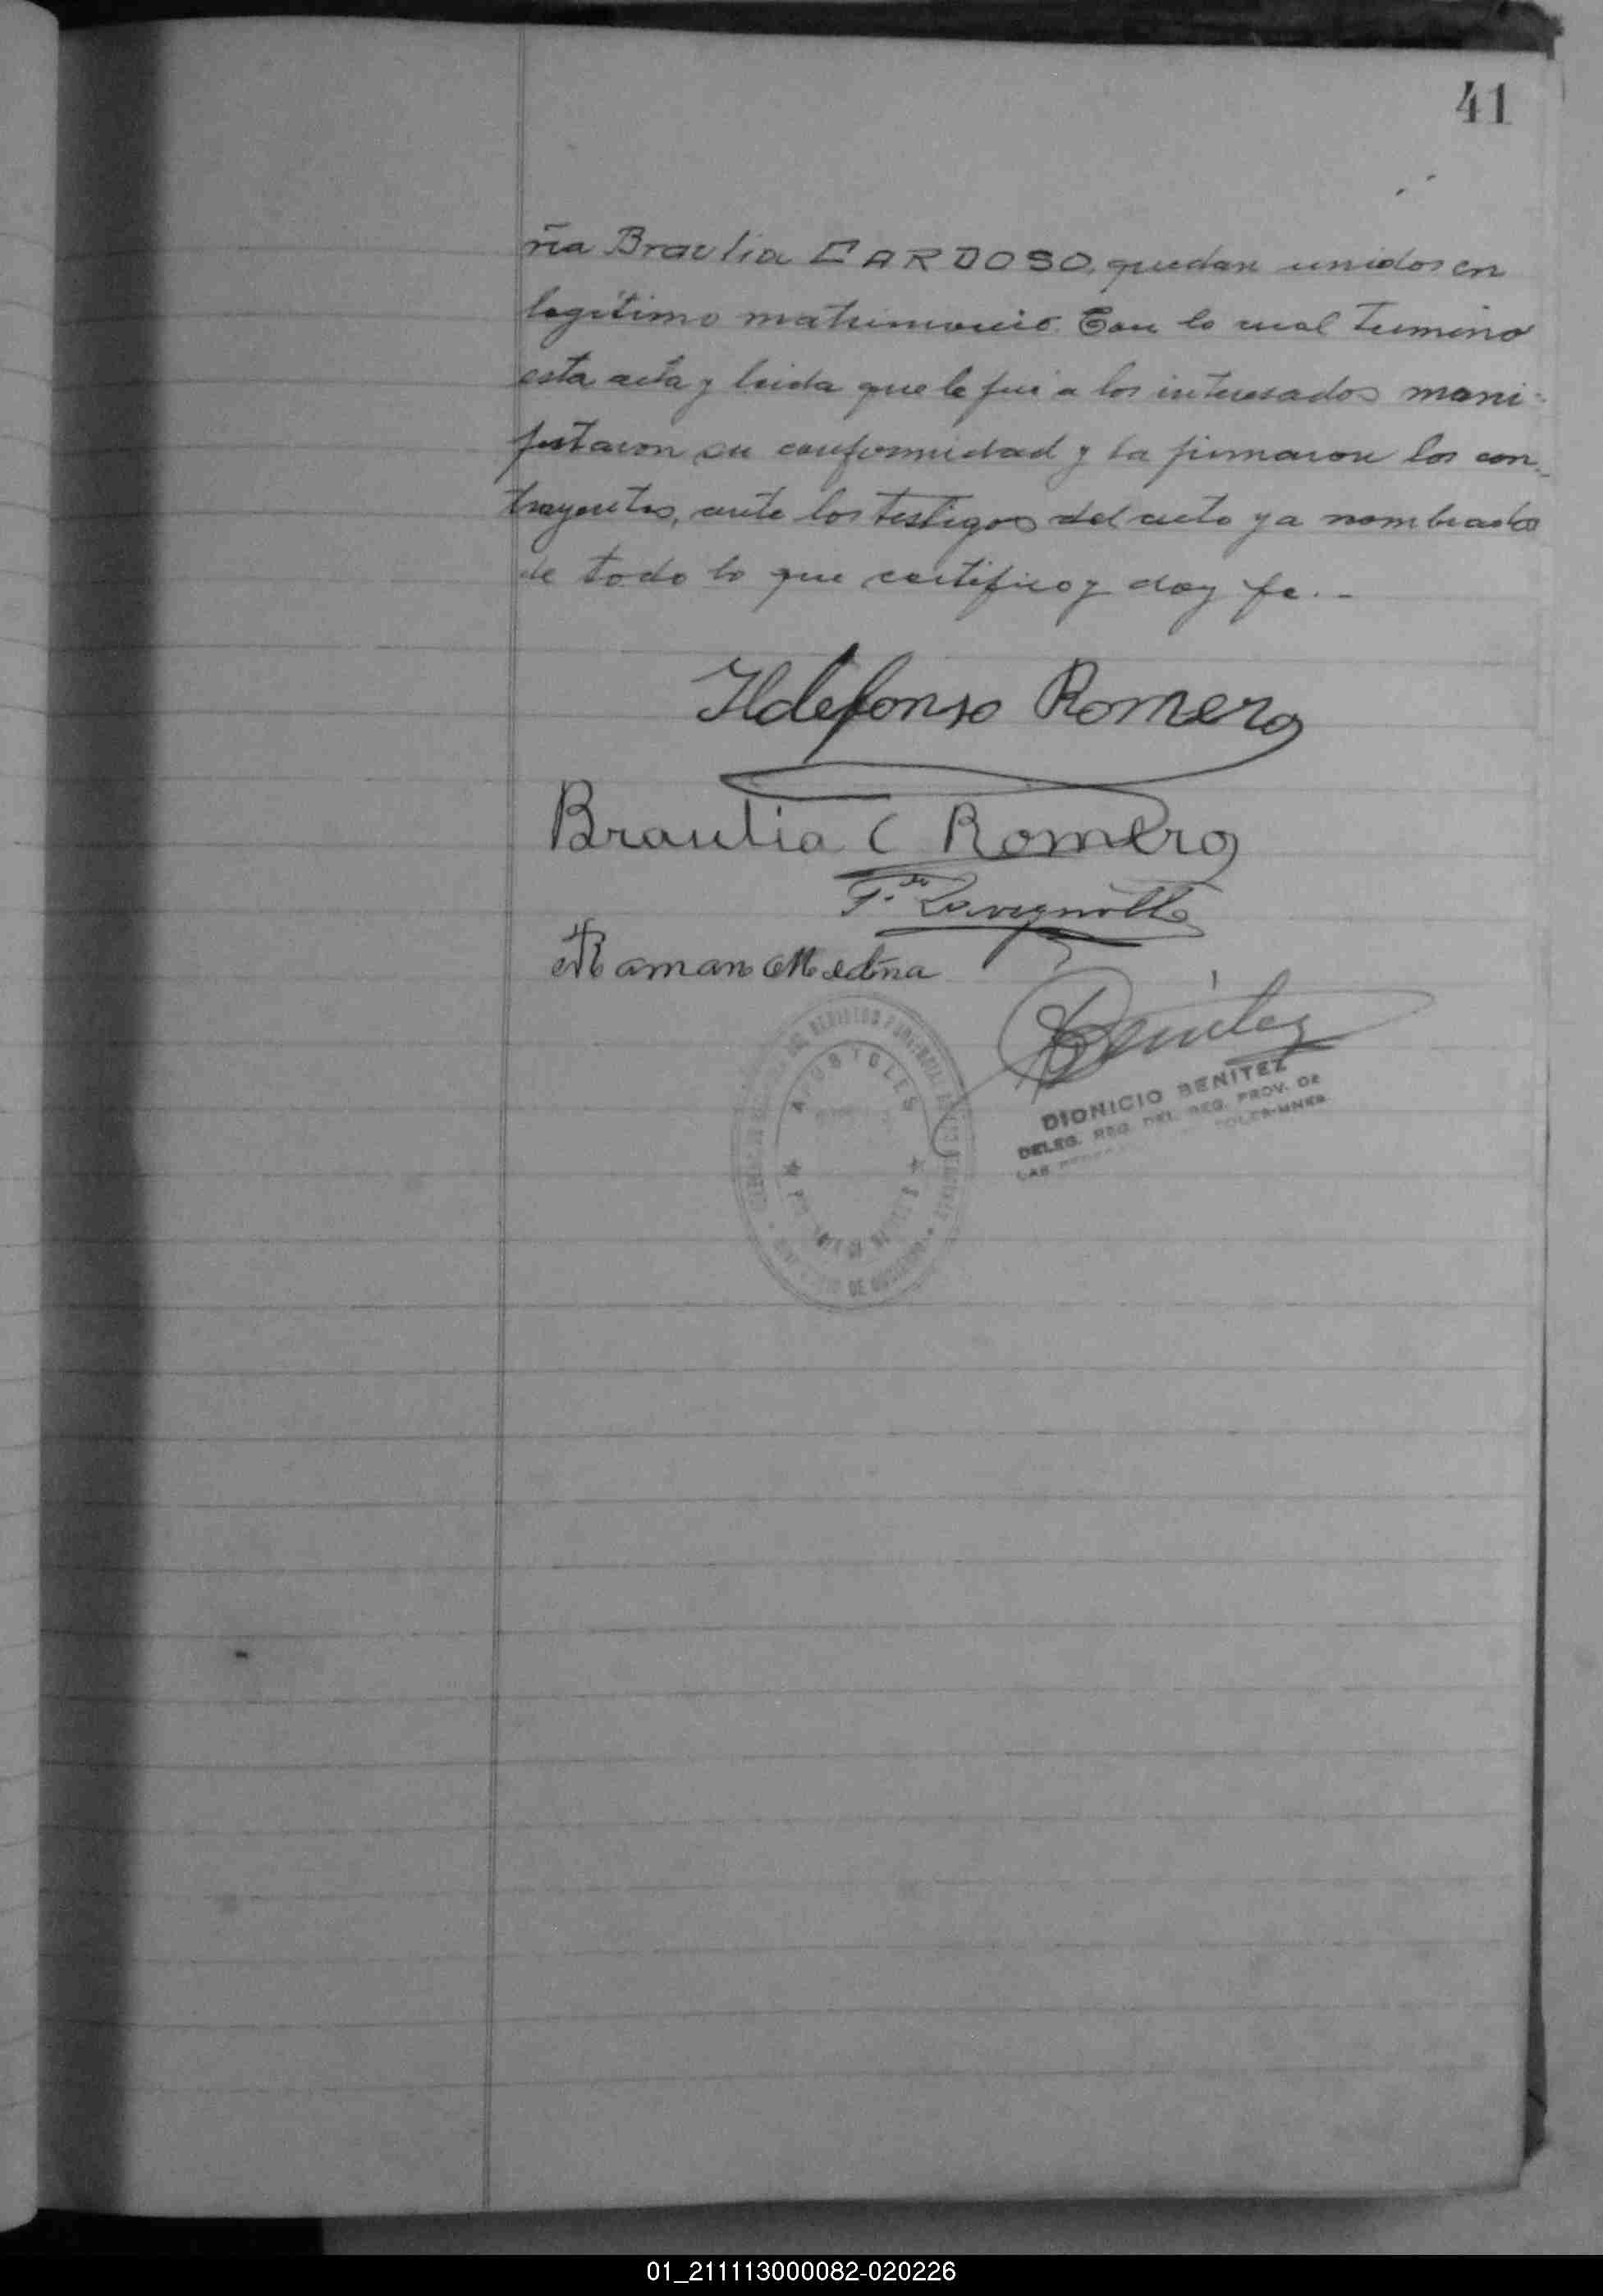 41
ria Braulia CARDOSO, quedan unidos en
legítimo matrimonio. Con lo cual termino
esta acta y leida que le fué a los interesados mani-
festaron su conformidad y la firmaron los con-
trayentes, ante los testigos del acto ya nombrados
de todo lo que certifico y doy fe. -
Ildefonso Romero
Braulia C Romero
Lavignolle
Raman Medina
Benitez
APOSTOLES
DIONICIO BENITEZ
DELEG. REG. DEL REG. PROV. DE
LAS
DE GOBIERNO
01_211113000082-020226